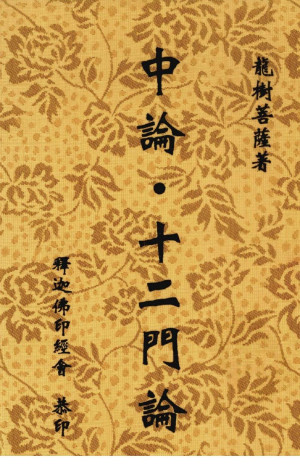 龍樹菩薩著
中論·十二門論
釋迦佛印經會 恭印